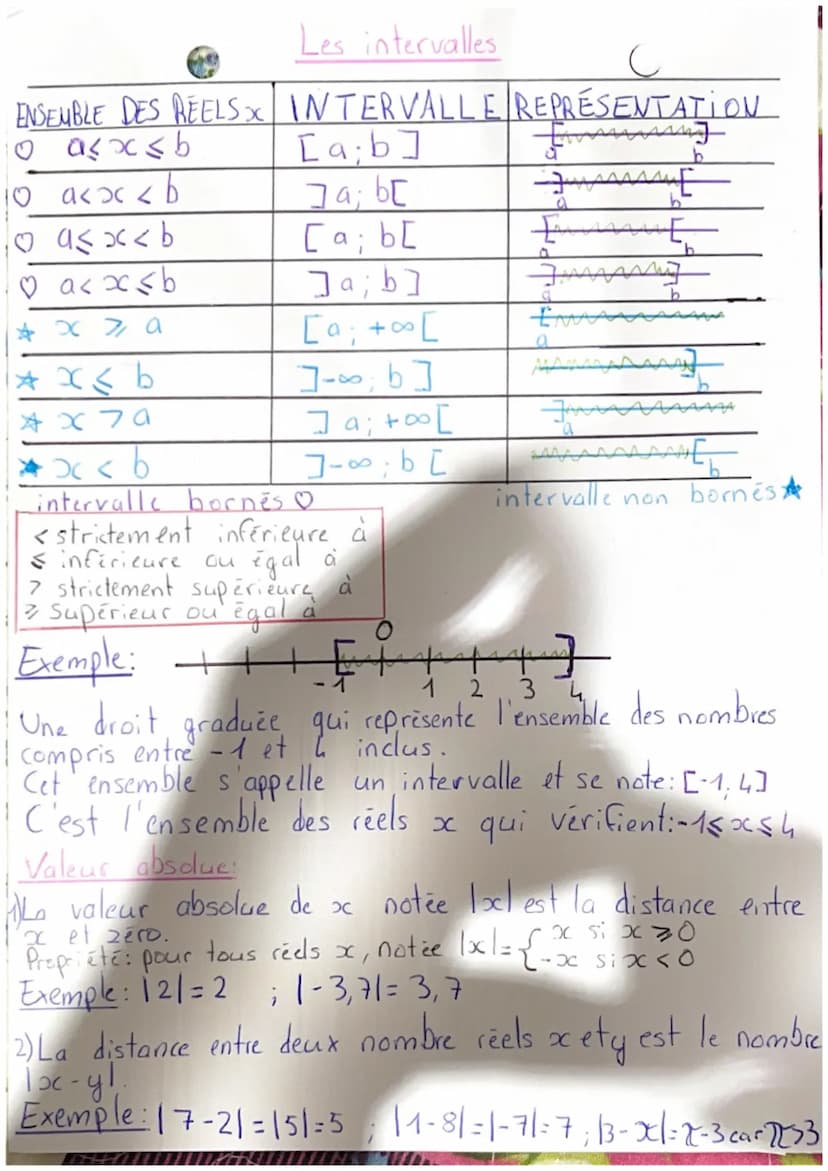 Les intervalles
ENSEMBLE DES RÉELS x INTERVALLE REPRÉSENTATION
♡ a⩽x⩽b [a;b] a b
♡ a<x<b ]a;b[ a b
♡ a⩽x<b [a;b[ a b
♡ a<x⩽b ]a;b] a b
★ x⩾a [a;+∞[ a
★ x⩽b ]-∞;b] b
★ x>a ]a;+∞[ a
★ x<b ]-∞;b[ b
intervalle bornés ♡ intervalle non bornés ★
< strictement inférieure à
⩽ inférieure ou égal à
> strictement supérieure à
⩾ Supérieur ou égal à
0
Exemple:
-1 1 2 3 4
Une droit graduée qui représente l'ensemble des nombres
compris entre -1 et 4 inclus.
Cet ensemble s'appelle un intervalle et se note: [-1;4]
C'est l'ensemble des réels x qui vérifient:-1⩽x⩽4
Valeur absolue:
1)La valeur absolue de x notée |x| est la distance entre
x et zéro.
Propriété: pour tous réels x, notée |x|={ x si x⩾0
-x si x<0
Exemple: |2|=2 ; |-3,7|=3,7
2)La distance entre deux nombre réels x et y est le nombre
|x-y|.
Exemple:|7-2|=|5|=5 ; |1-8|=|-7|=7 ; |3-π|=π-3 car π>3